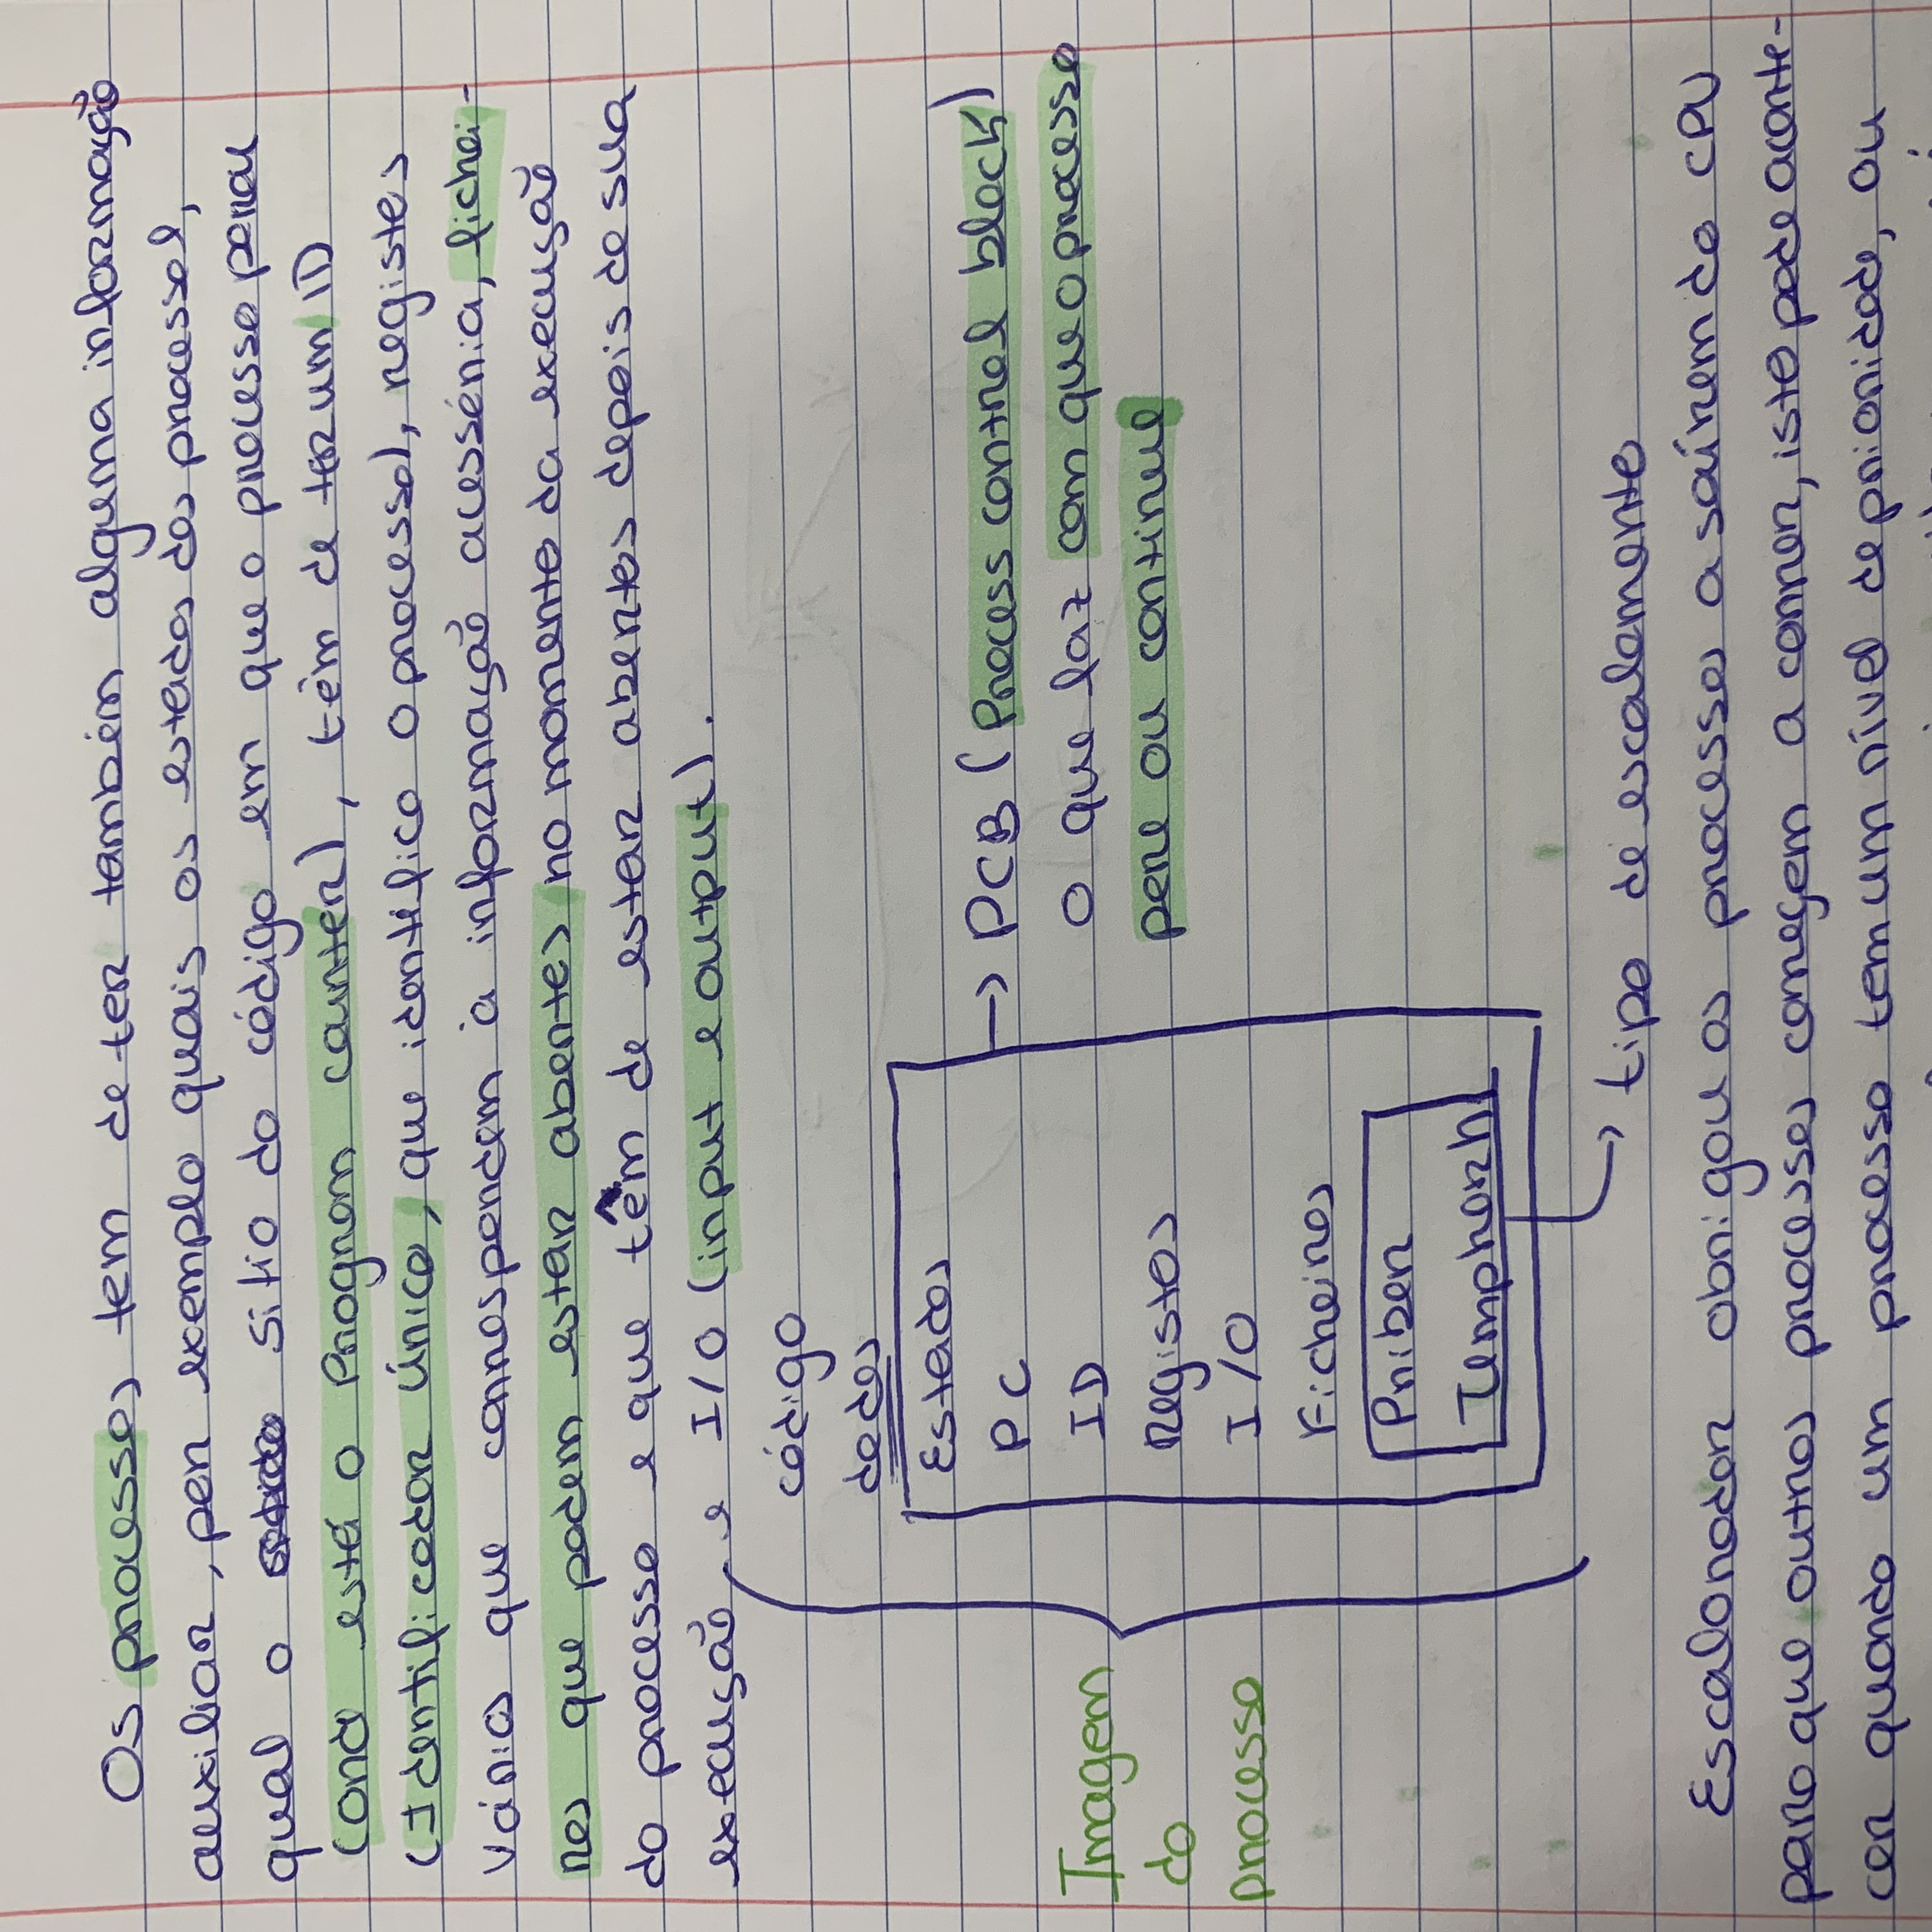 Os processos tem de ter também alguma informação
auxiliar, por exemplo quais os estados dos processos,
qual o sitio do código em que o processo parou
(onde está o Program counter), têm de ter um ID
(Identificador Único, que identifica o processo), registos
vários que correspondem à informação acessória, fichei-
ros que podem estar abertos no momento da execução
do processo e que têm de estar abertos depois de sua
execução e I/O (input e output).
código
dados
Estados
PC
→ PCB (Process control block)
ID
o que faz com que o processo
Registos
pare ou continue
I/O
Ficheiros
Imagem
do
processo
→ tipo de escalamento
Escalonador obrigou os processos a saírem do CPU
para que outros processos começem a correr, isto pode aconte-
cer quando um processo tem um nível de prioridade, ou